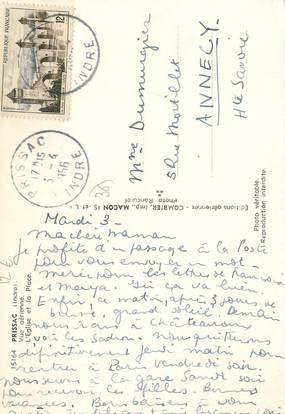 REPUBLIQUE FRANÇAISE
12F
INDRE
PRISSAC
17H15
3-4
1956
INDRE
Mme Dumurgier
5 Rue Mortillet
ANNECY
Hte Savoie
Editions aériennes - COMBIER, imp. MACON (S.-et-L.)
Photo Rancurel
Photo véritable.
Reproduction interdite.
15164 PRISSAC (Indre)
Vue aérienne.
L'Eglise et la Place.
Mardi 3 -
Ma chère Maman
Je profite d'un passage à la Poste
pour vous envoyer un mot -
merci pour les lettres de Françoise
et Ici ça va bien
Enfin, ce matin, après 3 jours de
grand soleil. Demain
nous irons à Châteauroux
voir les Sadron. Nous quittons
définitivement jeudi matin pour
rentrer à Paris Vendredi soir.
Nous serons à la gare Samedi soir
pour recevoir les filles. Bonnes
vacances. Bons baisers à vous